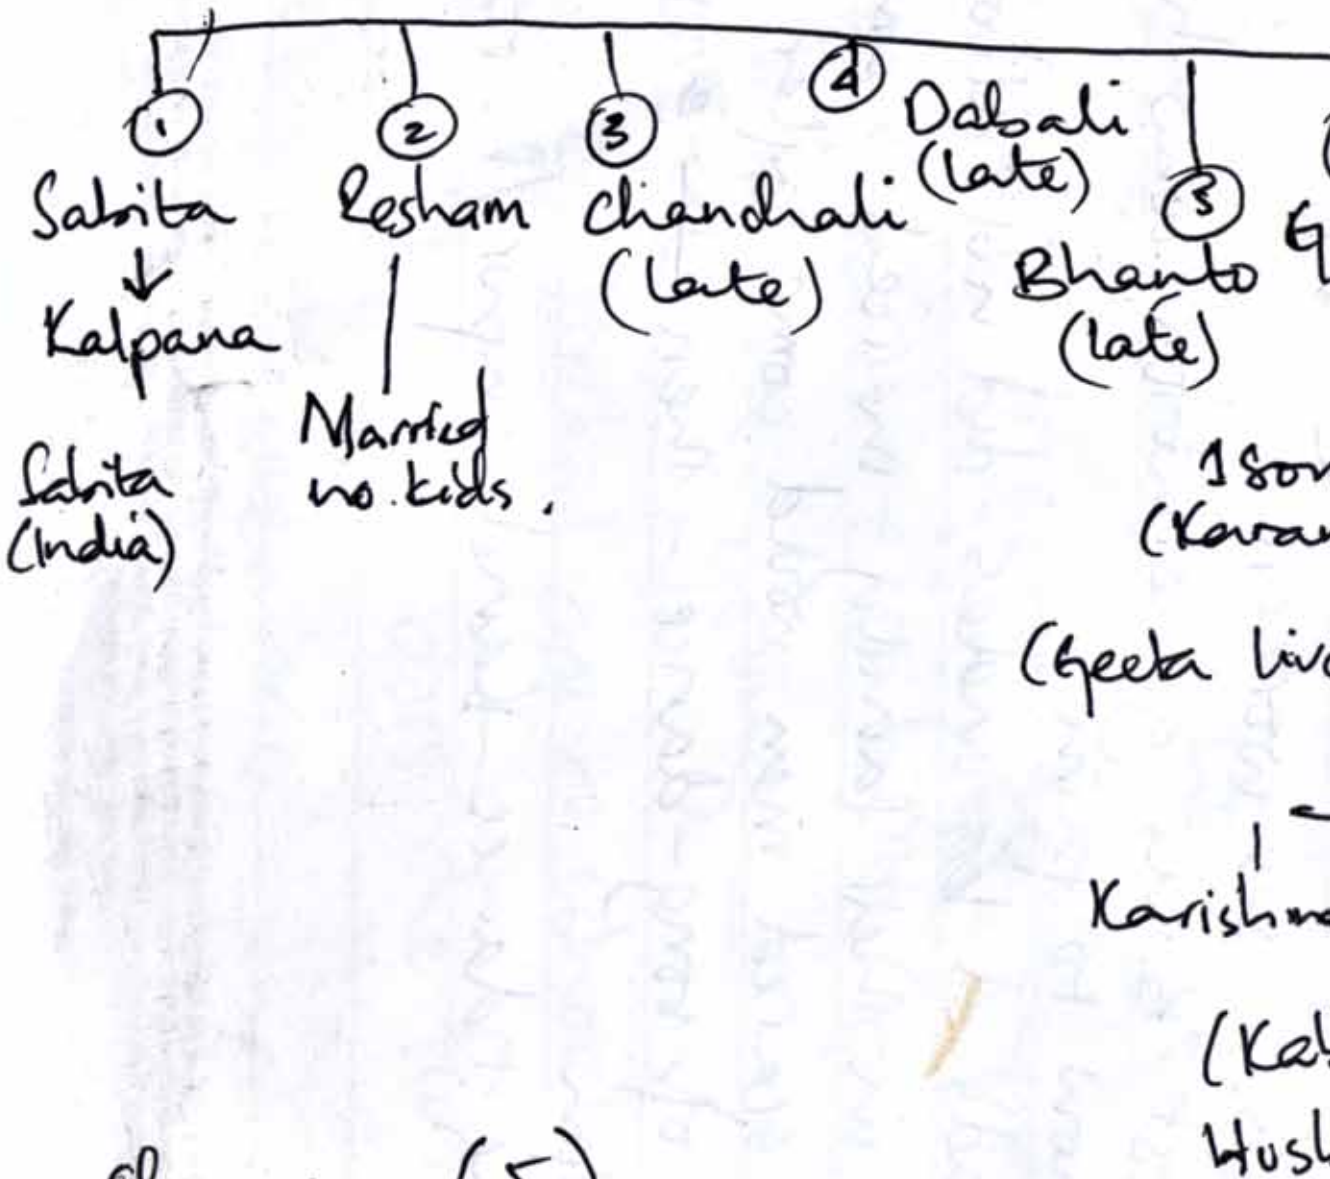 1
Sabita
↓
Kalpana
Sabita
(India)
2
Resham
Married
no kids.
3
Chandrali
(late)
4
Dabali
(late)
5
Bhanto
(late)
G
1 Son
(Karan
(Geeta liv
Karishma
(Kal
Hus
(5)